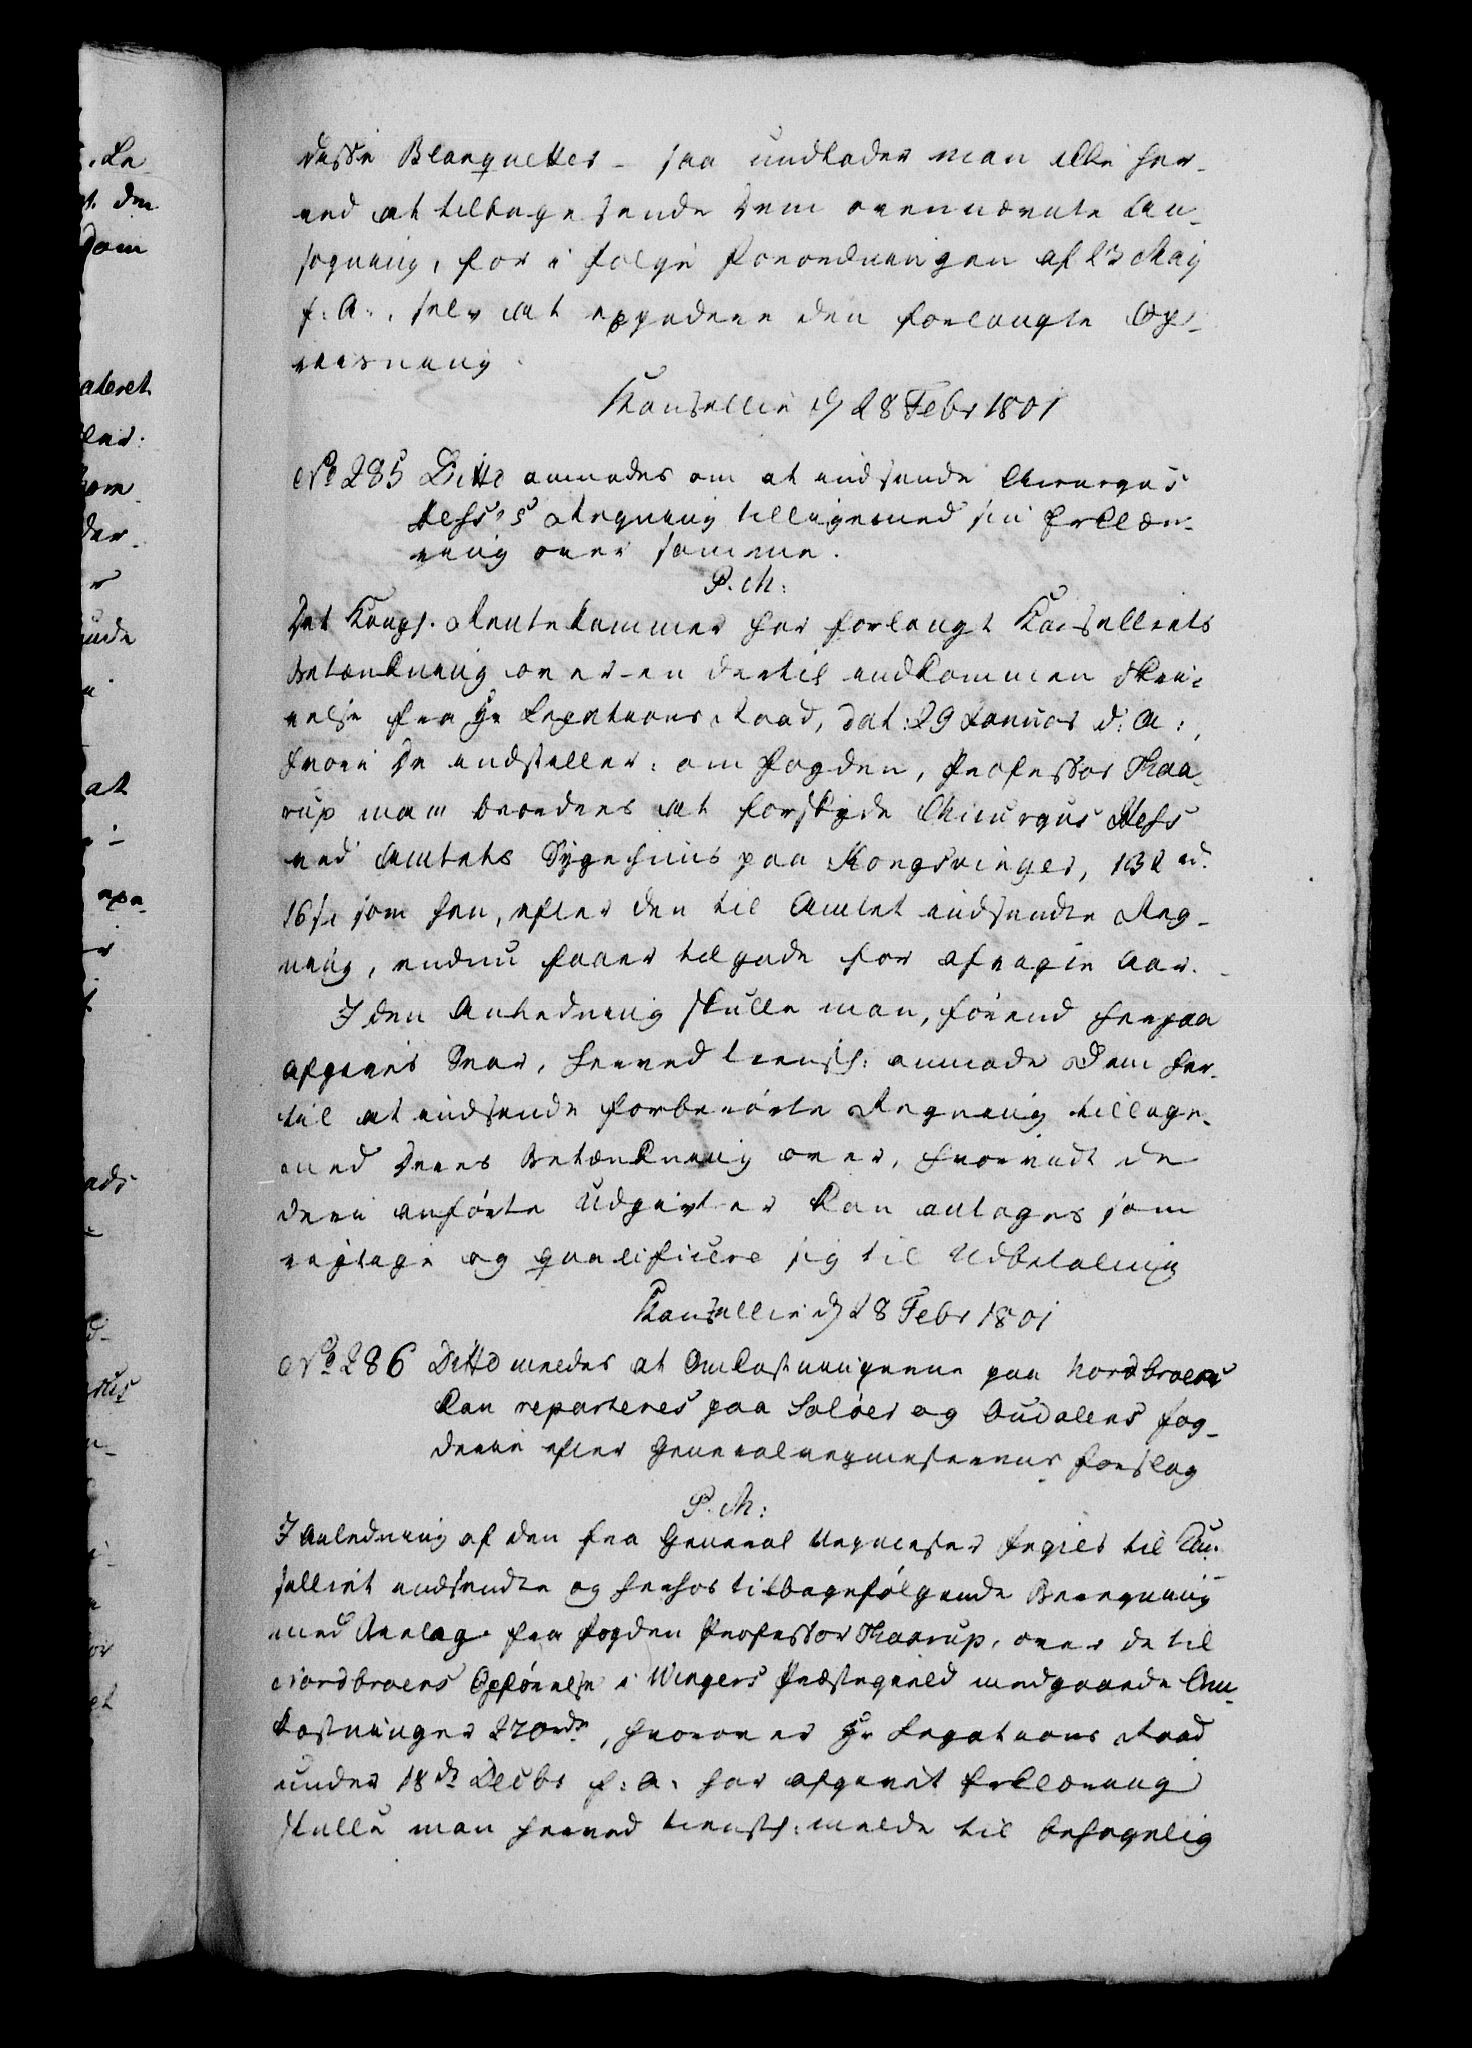 disse Blanquetter – saa undlader man ikke her-
ved at tilbagesende Dem ovennævnte An-
søgning, for i følge Forordningen af 23 Maij
f: A:, selv at expedere den forlangte Op-
reisning
Kancelliet d 28 Febr 1801
No 285 Ditto anmodes om at indsende Chirurgus
Hess's Regning tilligemed sin Erklæ-
ring over samme.
P. M:
Det Kongl. Rentekammer har forlangt Kancelliets
Betænkning over en dertil indkommen Skri-
velse fra Hr Legations Raad, dat: 29 Januar d: A:,
hvori De indstiller: om Fogden, Professor Thaa-
rup maa beordres at forskyde Chirurgus Hess
ved Amtets Sygehuus paa Kongsvinger, 132 rd.
16 s som han, efter den til Amtet indsendte Reg-
ning, endnu faaer tilgode for afvigte Aar.
I den Anledning skulle man, førend herpaa
afgives Svar, herved tienstl: anmode Dem her-
til at indsende forberørte Regning tillige-
med Deres Betænkning over, hvorvidt de
deri anførte Udgivter kan antages som
rigtige og qualificere sig til Udbetaling
Kancelliet d 28 Febr 1801
No 286 Ditto meldes at Omkostningerne paa Nordbroens
kan reparteres paa Soløer og Oudalens Fog-
derie efter Generalveymesterens Forslag
P. M:
I Anledning af den fra General Veymester til Can-
celliet indsendte og herhos tilbagefølgende Beregning
med Anlæg fra Fogden Professor Thaarup, over de til
Nordbroens Opførelse i Wingers Præstegield medgaaede Om-
kostninger 270 rdr, hvorover Hr Legations Raad
under 18de Decbr f: A: har afgivet Erklæring
skulle man herved tienstl: melde til behagelig